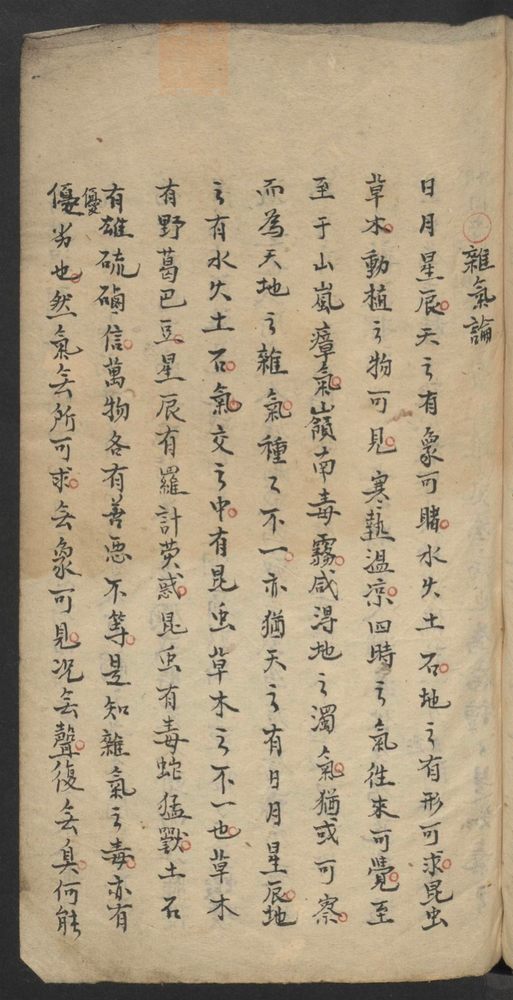 雜氣論
日月星辰天之有象可睹水火土石地之有形可求昆虫
草木動植之物可見寒熱溫凉四時之氣徃來可覺至
至于山嵐瘴氣嶺南毒霧咸淂地之濁氣猶或可察
而為天地之雜氣種々不一亦猶天之有日月星辰地
之有水火土石氣交之中有昆虫草木之不一也草木
有野葛巴豆星辰有羅計熒惑昆虫有毒蛇猛獸土石
有雄硫磠信萬物各有善惡不等是知雜氣之毒亦有
優
優劣也然氣無所可求無象可見况無聲復無臭何能